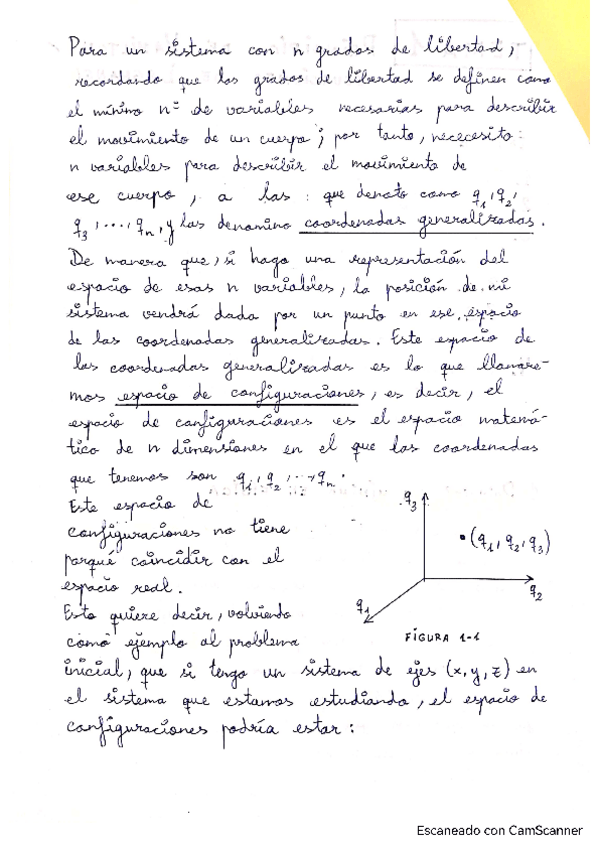 Para un sistema con n grados de libertad,
recordando que los grados de libertad se definen como
el mínimo nº de variables necesarias para describir
el movimiento de un cuerpo; por tanto, nececesito:
n variables para describir el movimiento de
ese cuerpo, a las: que denoto como q1, q2,
q3, ..., qn, y las denomino coordenadas generalizadas.
De manera que, si hago una representación del
espacio de esas n variables, la posición de mi
sistema vendrá dada por un punto en ese espacio
de las coordenadas generalizadas. Este espacio de
las coordenadas generalizadas es lo que llamare-
mos espacio de configuraciones, es decir, el
espacio de configuraciones es el espacio matemá-
tico de n dimensiones en el que las coordenadas
que tenemos son q1, q2, ..., qn.
Este espacio de
configuraciones no tiene
porqué coincidir con el
espacio real.
Esto quiere decir, volviendo
como ejemplo al problema
q3
(q1, q2, q3)
q2
q1
FIGURA 1-1
inicial, que si tengo un sistema de ejes (x, y, z) en
el sistema que estamos estudiando, el espacio de
configuraciones podría estar:
Escaneado con CamScanner